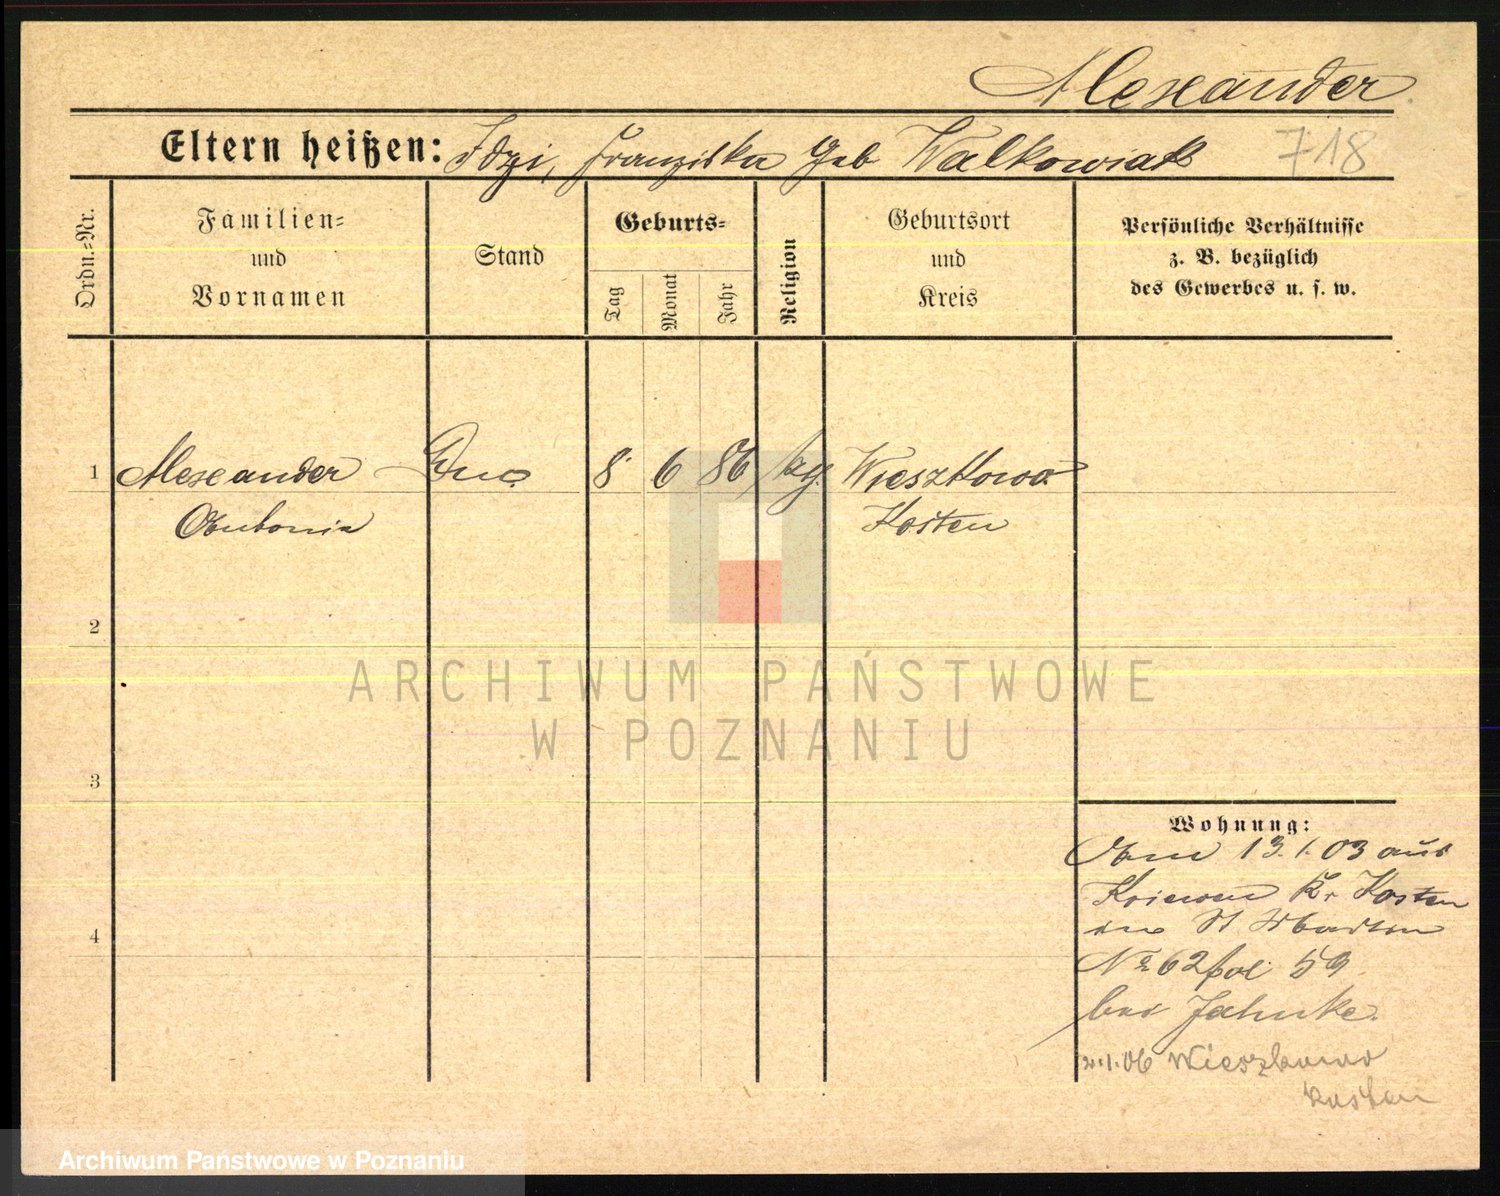 Alexander
Eltern heißen: Idzi, Franziska geb Walkowiak
718
Ordn.=Nr.
Familien=
und
Vornamen
Stand
Geburts=
Tag
Monat
Jahr
Religion
Geburtsort
und
Kreis
Persönliche Verhältnisse
z. B. bezüglich
des Gewerbes u. s. w.
1 Alexander 8 6 86 Wieszkowo
Antonia Kosten
2
ARCHIWUM PAŃSTWOWE
W POZNANIU
3
Wohnung:
Am 13.1.03 aus
Kr Kosten
4
No 62 fol 59
bei Jahnke.
1.06 Wieszkowo
Kosten
Archiwum Państwowe w Poznaniu